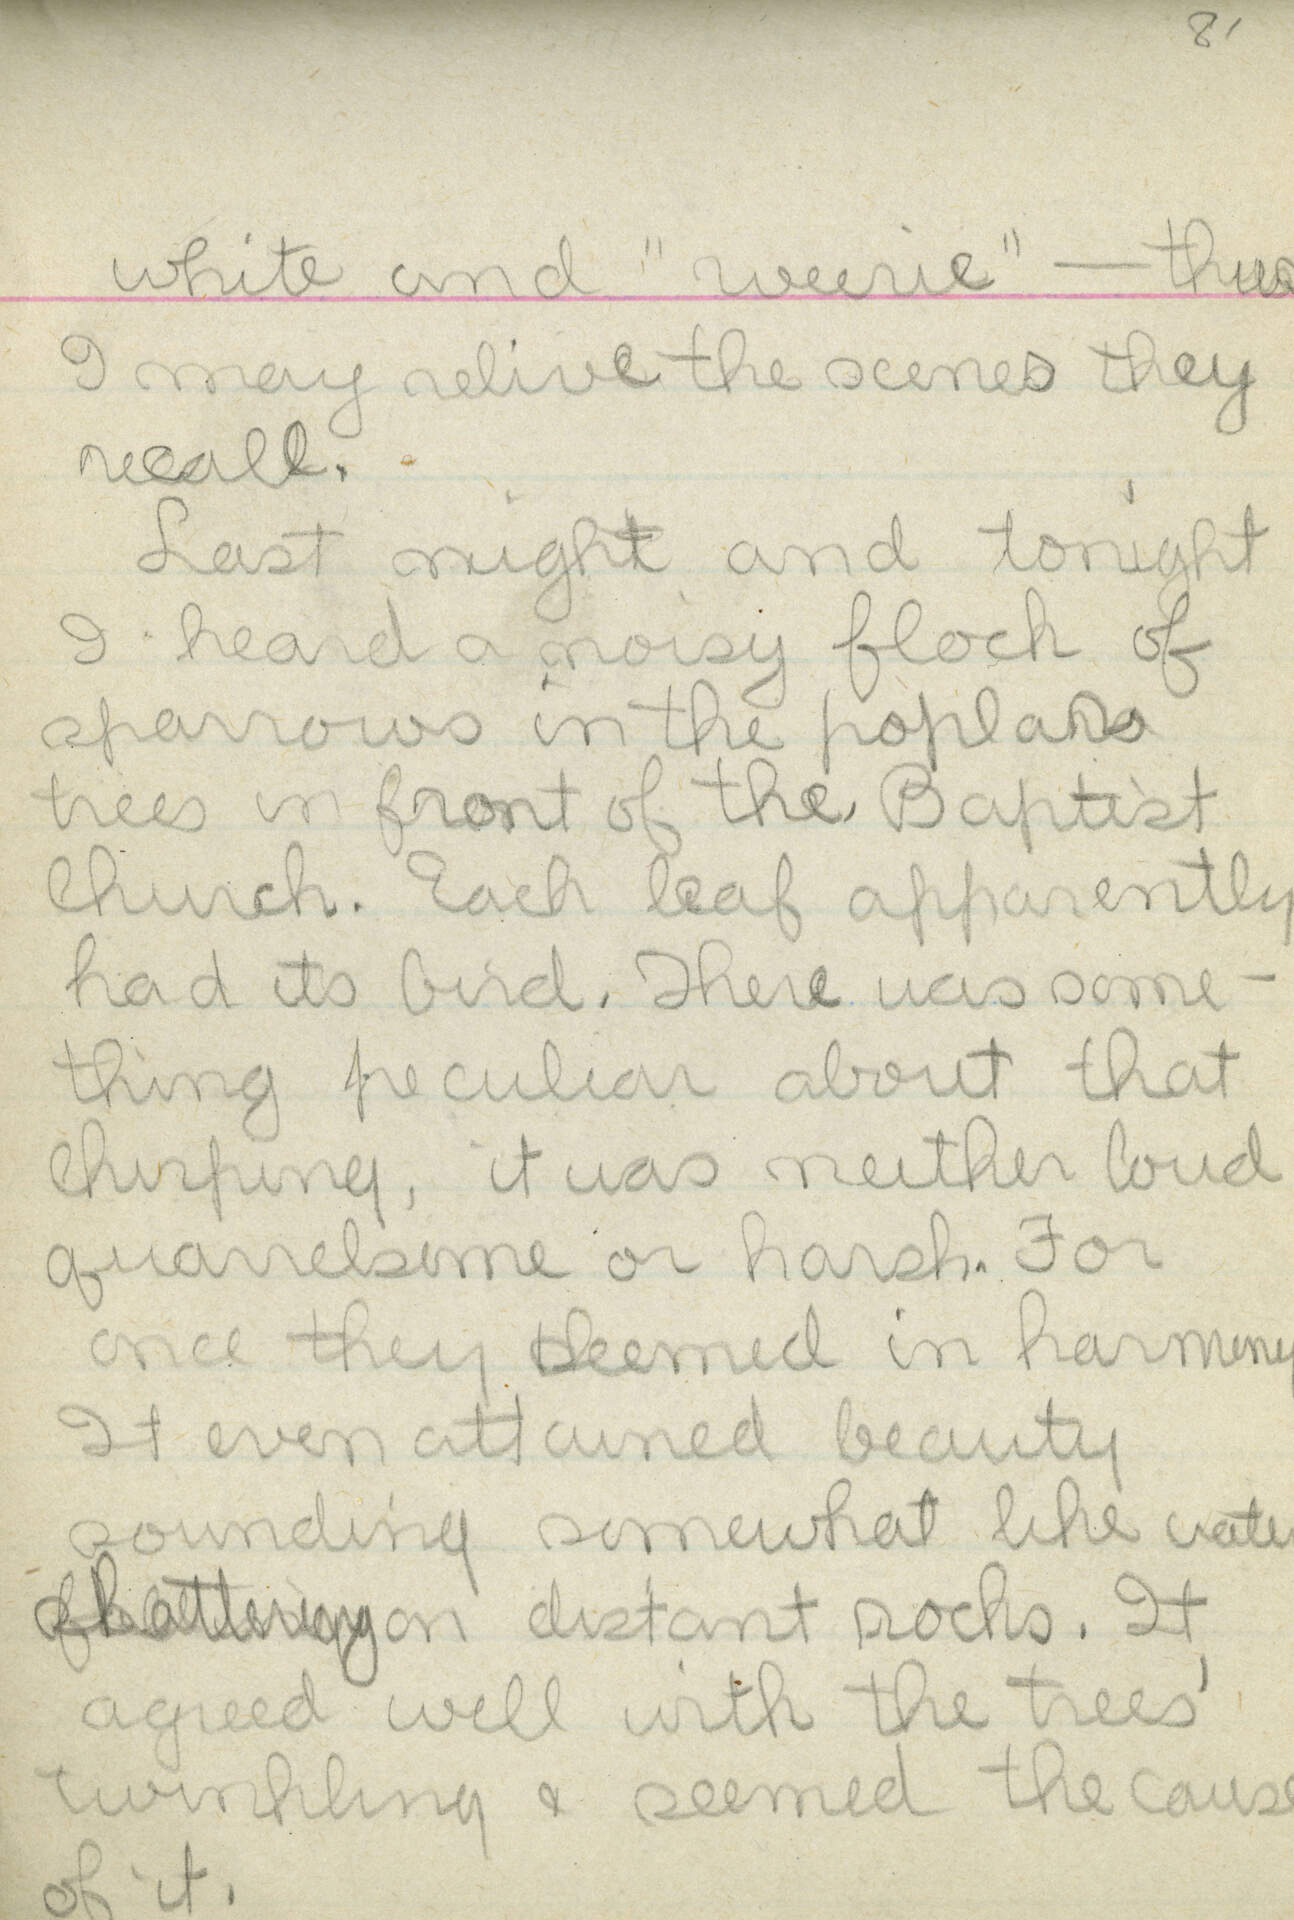 81
white and "weerie" — thus
I may relive the scenes they
recall.
Last night and tonight
I heard a noisy flock of
sparrows in the poplars
trees in front of the Baptist
Church. Each leaf apparently
had its bird. There was some-
thing peculiar about that
chirping, it was neither loud
quarrelsome or harsh. For
once they seemed in harmony
It even attained beauty
sounding somewhat like water
on distant rocks. It
agreed well with the trees'
twinkling & seemed the cause
of it.